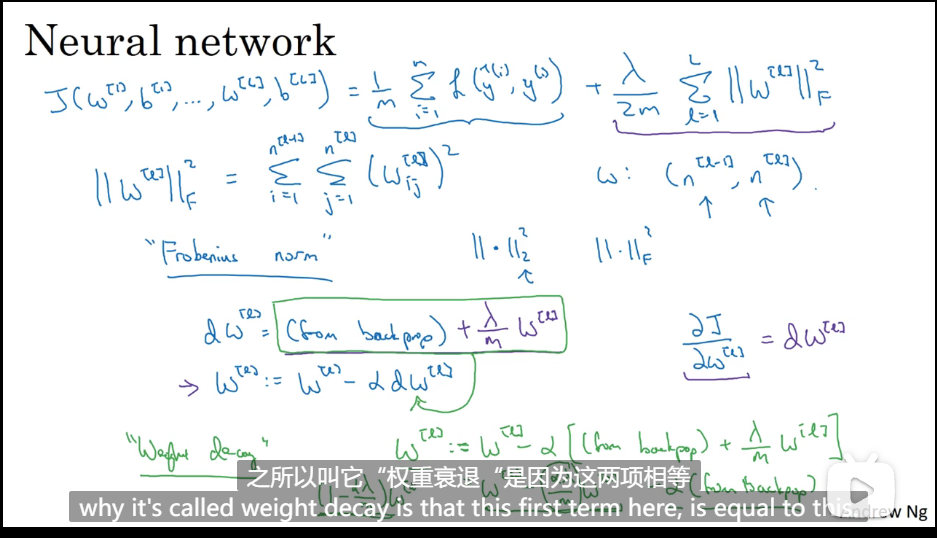 Neural network
J(w^[1], b^[1], ..., w^[L], b^[L]) = 1/m Σ_{i=1}^{n} ℒ(ŷ^(i), y^(i)) + λ/2m Σ_{l=1}^{L} ||w^[l]||_F^2
||w^[l]||_F^2 = Σ_{i=1}^{n^[l-1]} Σ_{j=1}^{n^[l]} (w_ij^[l])^2 w: (n^[l-1], n^[l]).
"Frobenius norm" ||·||_2^2 ||·||_F^2
dw^[l] = (from backprop) + λ/m w^[l] ∂J/∂w^[l] = dw^[l]
→ w^[l] := w^[l] - α dw^[l]
"Weight decay" w^[l] := w^[l] - α [(from backprop) + λ/m w^[l]]
之所以叫它“权重衰退“是因为这两项相等
(from backprop)
why it's called weight decay is that this first term here, is equal to this.
Andrew Ng